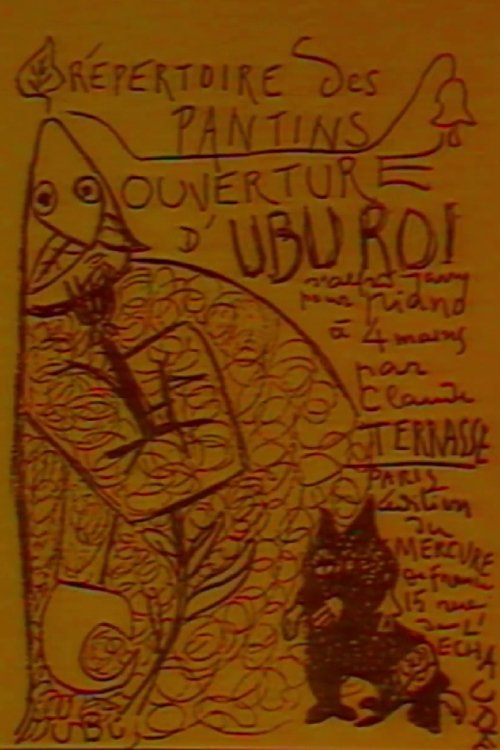 RÉPERTOIRE des
PANTINS
OUVERTURE
D'UBU ROI
d'Alfred Jarry
pour Piano
à 4 mains
par
Claude
TERRASSE
PARIS
édition
du
MERCURE
de France
15 rue
de L'
ECHAUDÉ
UBU